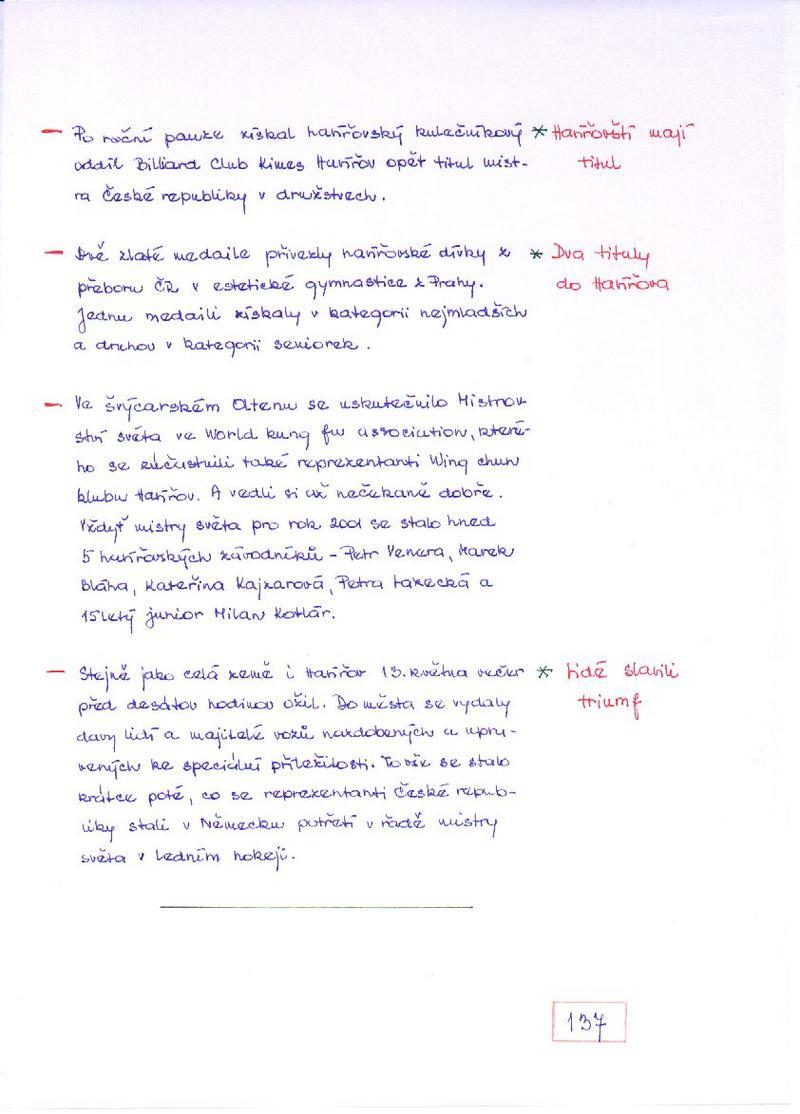 — Po roční pauze získal havířovský kulečníkový * Havířovští mají
oddíl Billiard Club Kimex Havířov opět titul mist- titul
ra České republiky v družstvech.
— Dvě zlaté medaile přivezly havířovské dívky z * Dva tituly
přeboru ČR v estetické gymnastice z Prahy. do Havířova
Jednu medaili získaly v kategorii nejmladších
a druhou v kategorii seniorek.
— Ve švýcarském Oltenu se uskutečnilo Mistrov-
ství světa ve World kung fu association, které-
ho se zúčastnili také reprezentanti Wing chun
klubu Havířov. A vedli si až nečekaně dobře.
Vždyť mistry světa pro rok 2001 se stalo hned
5 havířovských závodníků – Petr Vencra, Marek
Bláha, Kateřina Kajzarová, Petra Lazecká a
15letý junior Milan Kotlár.
— Stejně jako celá země i Havířov 13. května večer * Lidé slavili
před desátou hodinou ožil. Do města se vydaly triumf
davy lidí a majitelé vozů nazdobených a upra-
vených ke speciální příležitosti. To vše se stalo
krátce poté, co se reprezentanti České repub-
liky stali v Německu potřetí v řadě mistry
světa v ledním hokeji.
137